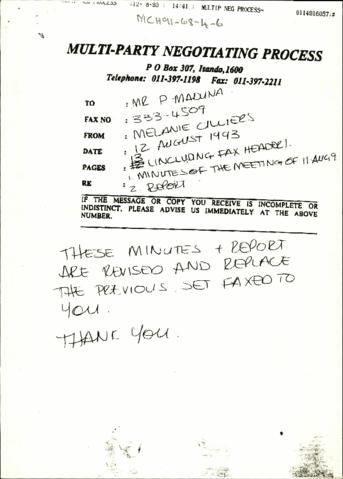 12- 8-93 ; 14:41 ; MULTIP NEG PROCESS→ 0114016057;#
MCH91-68-4-6
MULTI-PARTY NEGOTIATING PROCESS
P O Box 307, Isando,1600
Telephone: 011-397-1198 Fax: 011-397-2211
TO : MR P MADUNA
FAX NO : 333-4509
FROM : MELANIE CILLIERS
DATE : 12 AUGUST 1993
PAGES : 13 (INCLUDING FAX HEADER).
RE : 1. MINUTES OF THE MEETING OF 11 AUG 9
2 REPORT
IF THE MESSAGE OR COPY YOU RECEIVE IS INCOMPLETE OR
INDISTINCT, PLEASE ADVISE US IMMEDIATELY AT THE ABOVE
NUMBER.
THESE MINUTES + REPORT
ARE REVISED AND REPLACE
THE PREVIOUS SET FAXED TO
YOU.
THANK YOU.